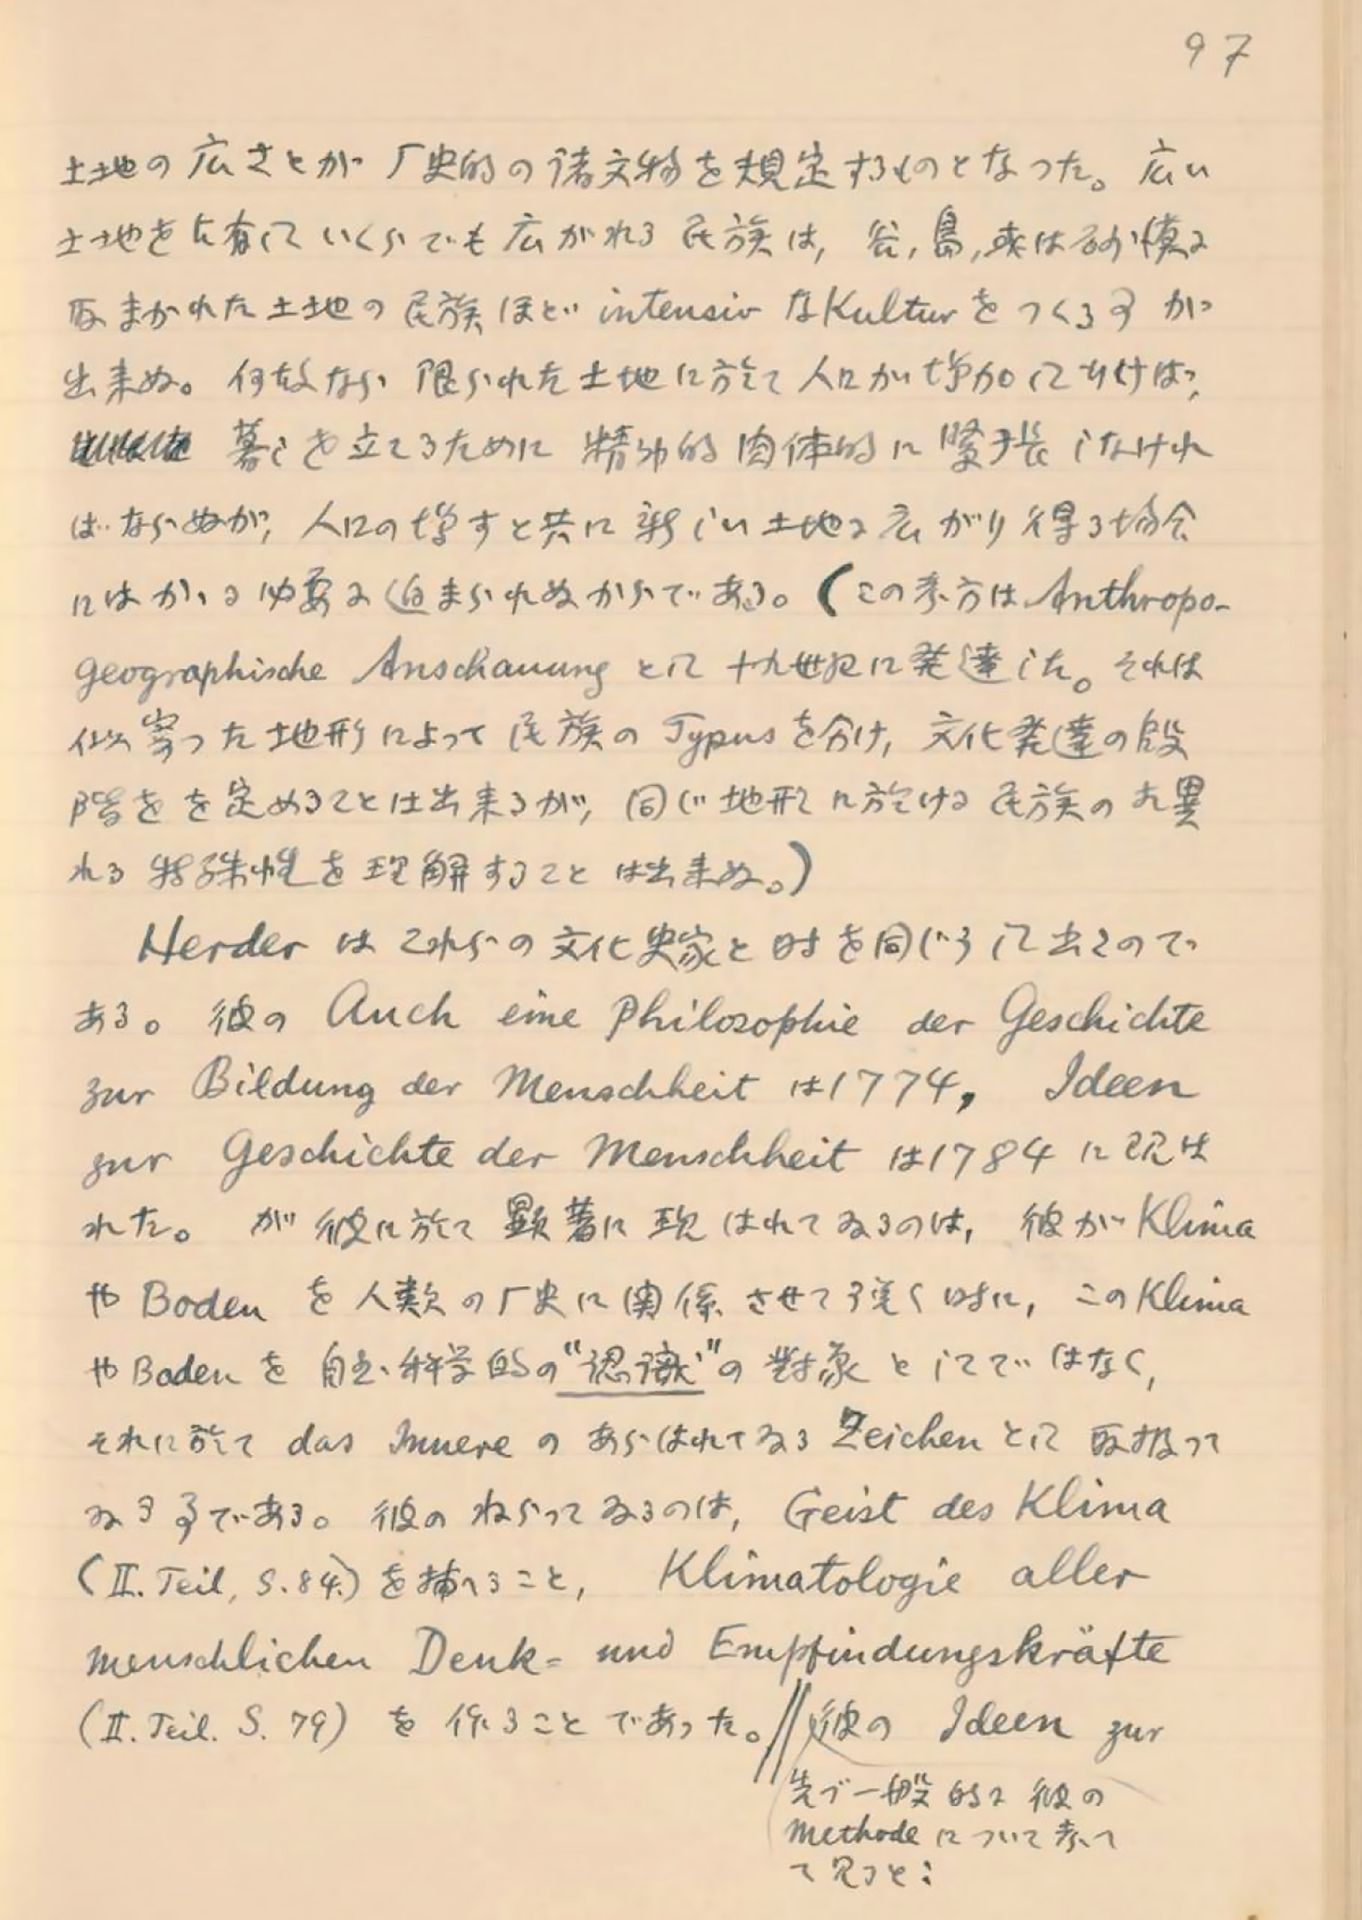 97
土地の広さとが 厂史的の諸文物を規定するものとなった。広い
土地を占有していくらでも広がれる民族は, 谷, 島, 或は砂漠に
取まかれた土地の民族ほど intensiv な Kultur をつくる事が
出来ぬ。何故なら 限られた土地に於て人口が増加して行けば,
暮しを立てるために 精神的肉体的に緊張しなけれ
ばならぬが, 人口の増すと共に新しい土地に広がり得る場合
にはかゝる必要に迫まられぬからである。(この考方は Anthropo-
geographische Anschauung として十九世紀に発達した。それは
似寄った地形によって民族の Typus を分け, 文化発達の段
階をを定めることは出来るが, 同じ地形に於ける民族の
れる特殊性を理解することは出来ぬ。)
Herder はこれらの文化史家と時を同じうして出たので
ある。彼の Auch eine Philosophie der Geschichte
zur Bildung der Menschheit は1774, Ideen
zur Geschichte der Menschheit は1784 に現は
れた。が彼に於て顕著に現はれてゐるのは, 彼が Klima
や Boden を人類の厂史に関係させて説く時に, この Klima
や Boden を自然科学的の“認識”の対象としてではなく,
それに於て das Innere のあらはれてゐる Zeichen として取扱って
ゐる事である。彼のねらってゐるのは, Geist des Klima
(II. Teil, S. 84.) を捕へること, Klimatologie aller
menschlichen Denk= und Empfindungskräfte
(II. Teil. S. 79) を作ることであった。// 彼の Ideen zur
先づ一般的に彼の
Methode について考へ
て見ると: